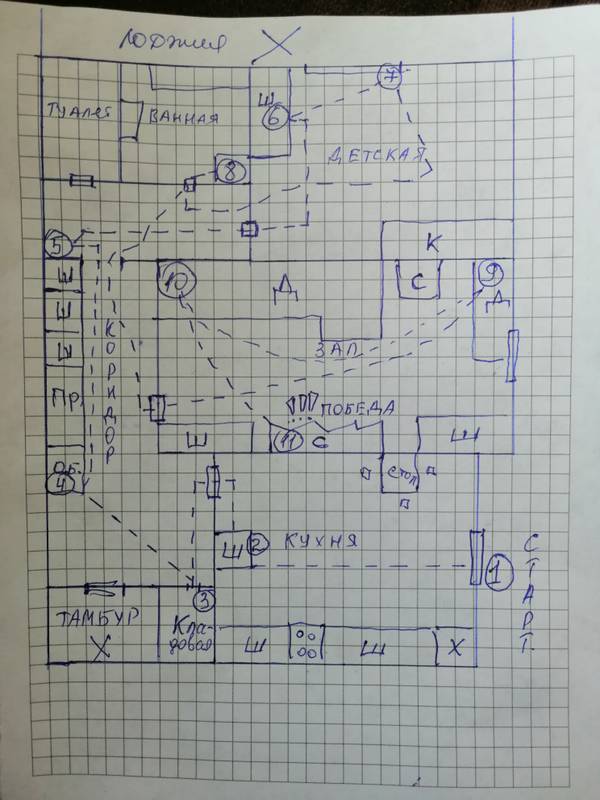 ЛОДЖИЯ X
ТУАЛЕТ
ВАННАЯ
Ш
6
7
ДЕТСКАЯ
8
5
К
Ш
Ш
Ш
10
Д
С
9
Д
КОРИДОР
ЗАЛ
Пр.
ПОБЕДА
Ш
11
С
Ш
Об.
4
СТОЛ
Ш
2
КУХНЯ
1
СТАРТ
3
ТАМБУР
X
Кла-
довая
Ш
Ш
Х